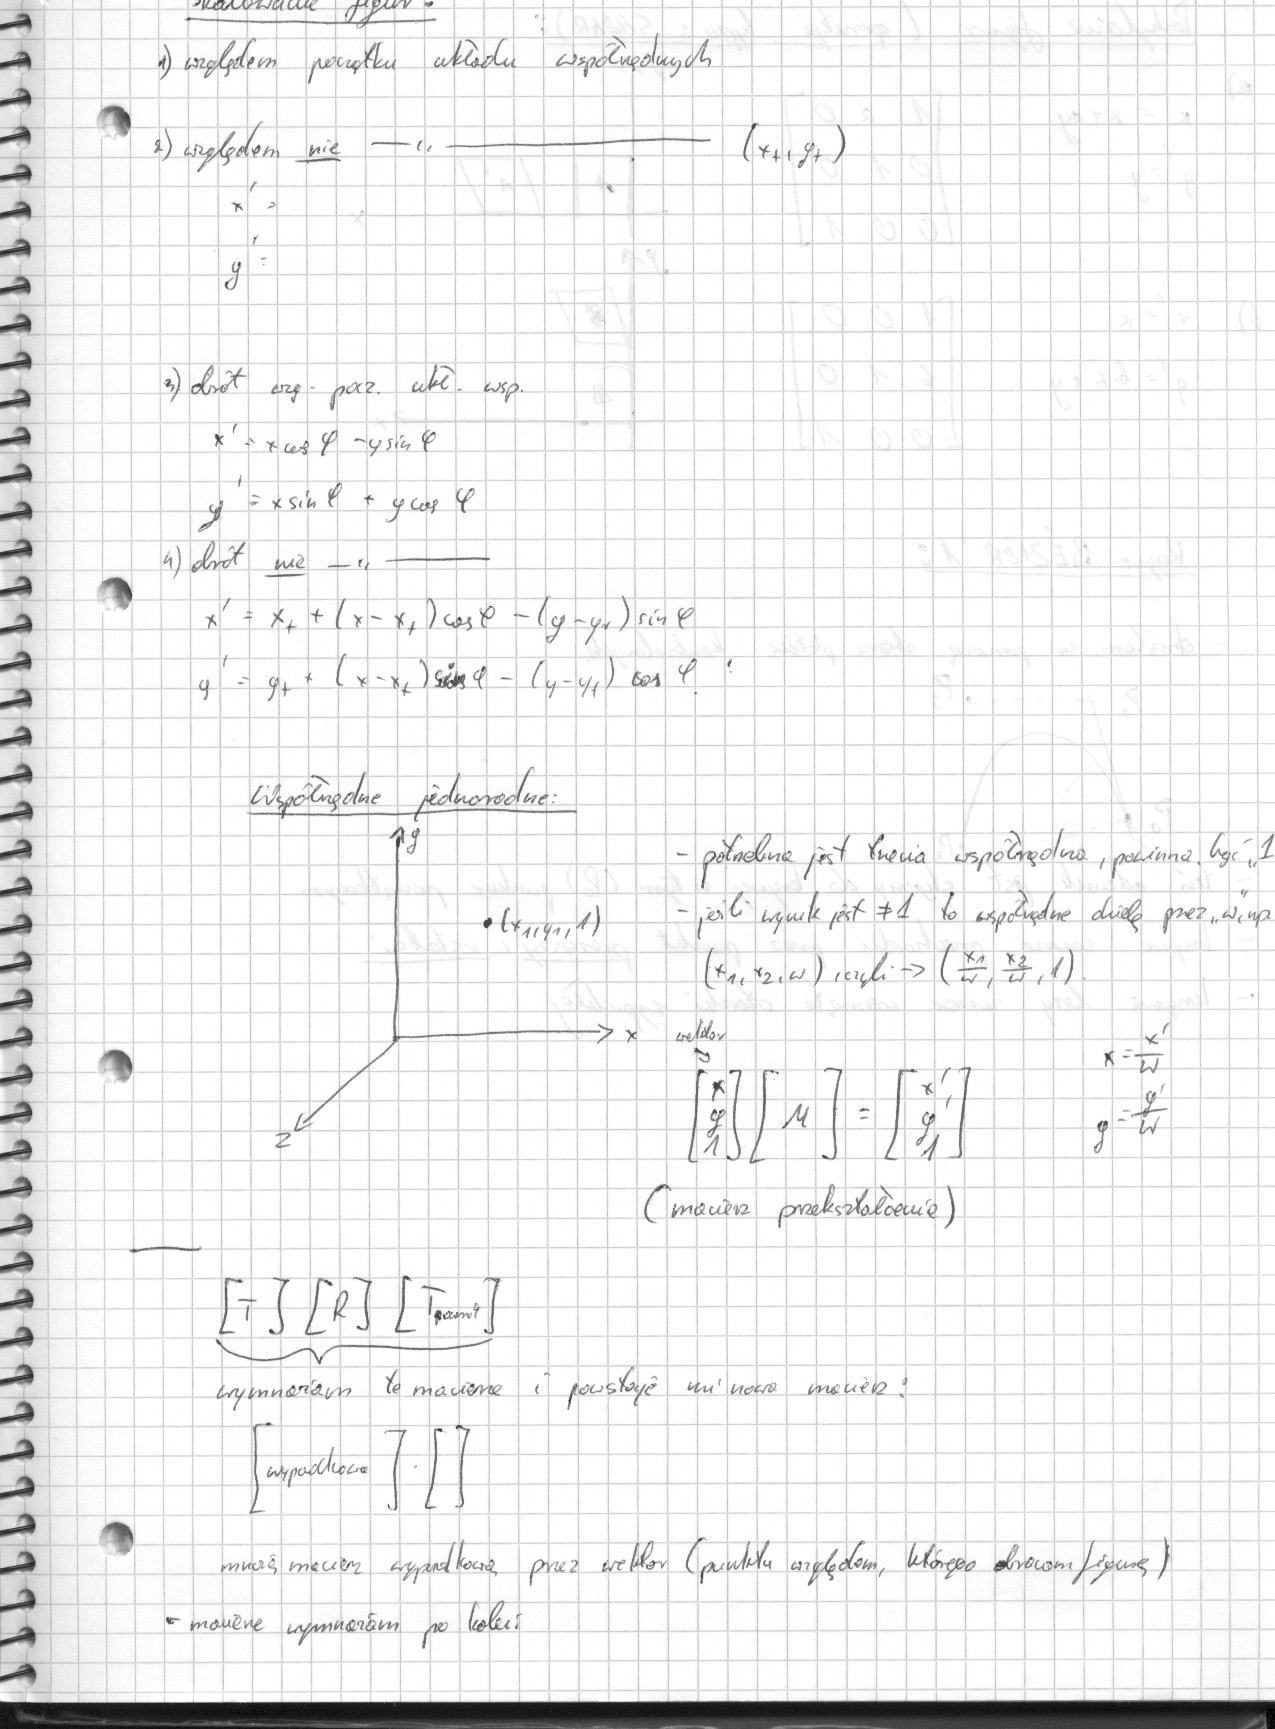 skalowanie figur:
1) względem początku układu współrzędnych
2) względem nie —„— (x₊, y₊)
x' =
y' =
3) obrót wzg. pocz. ukł. wsp.
x' = x cos φ - y sin φ
y' = x sin φ + y cos φ
4) obrót nie —„—
x' = x₊ + (x - x₊) cos φ - (y - yᵣ) sin φ
y' = y₊ + (x - x₊) sin φ - (y - y₊) cos φ !
Współrzędne jednorodne:
y
(x₁, y₁, 1)
x
z
- potrzebna jest trzecia współrzędna, powinna być „1
- jeśli wynik jest ≠ 1 to współrzędne dzielę przez „w", np.
(x₁, x₂, w), czyli → (x₁/w, x₂/w, 1)
wektor
[x y 1] [M] = [x' y' 1]
x = x'/w
y = y'/w
(macierz przekształcenia)
[T] [R] [T powrót]
wymnażam te macierze i powstaje mi nowa macierz:
[wypadkowa] · [ ]
mnożę macierz wypadkową przez wektor (punktu względem, którego obracam figurę)
- macierze wymnażam po kolei